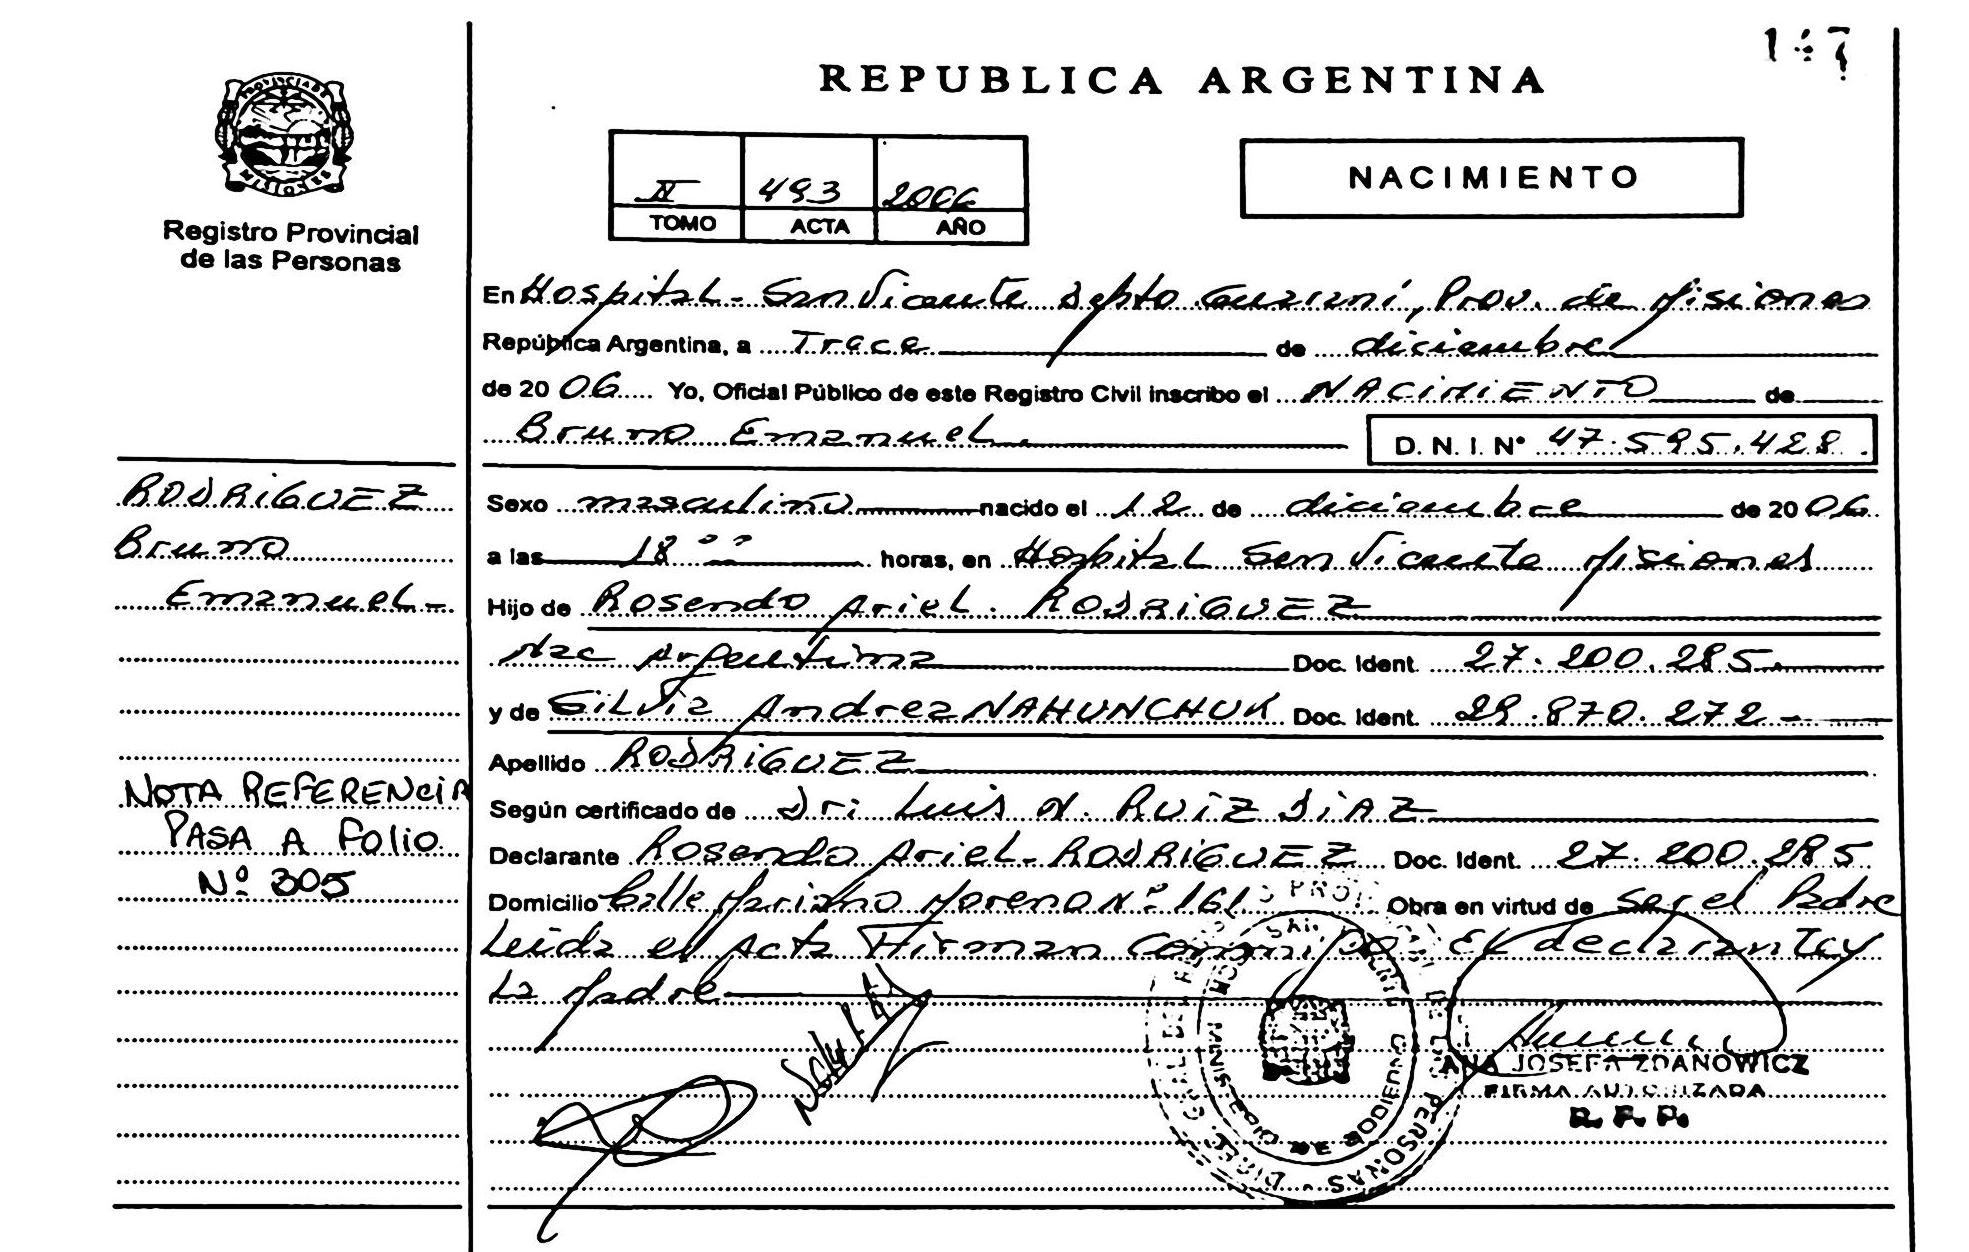 147
PROVINCIA DE
MISIONES
Registro Provincial
de las Personas
REPUBLICA ARGENTINA
II 493 2006
TOMO ACTA AÑO
NACIMIENTO
En Hospital - San Vicente Depto Guarani, Prov. de Misiones
República Argentina, a Trece de diciembre
de 2006 Yo, Oficial Público de este Registro Civil inscribo el NACIMIENTO de
Bruno Emanuel
D. N. I. Nº 47.595.428.
RODRIGUEZ
Bruno
Emanuel -
Sexo masculino nacido el 12 de diciembre de 2006
a las 18 00 horas, en Hospital San Vicente Misiones
Hijo de Rosendo Ariel. RODRIGUEZ
Nac Argentina Doc. Ident. 27.200.285.
y de Silvia Andrea NAHUNCHUK Doc. Ident. 29.870.272 -
Apellido RODRIGUEZ
Según certificado de Dr: Luis N. RUIZ DIAZ
Declarante Rosendo Ariel - RODRIGUEZ Doc. Ident. 27.200.285
Domicilio Calle Mariano Moreno Nº 161 Obra en virtud de Ser el Padre
Leida el Acta Firman Conmigo El declarante y
La Madre
NOTA REFERENCIA
PASA A FOLIO
Nº 305
ANA JOSEFA ZDANOWICZ
FIRMA AUTORIZADA
R. P. P.
PERSONAS
MINISTERIO DE GOBIERNO